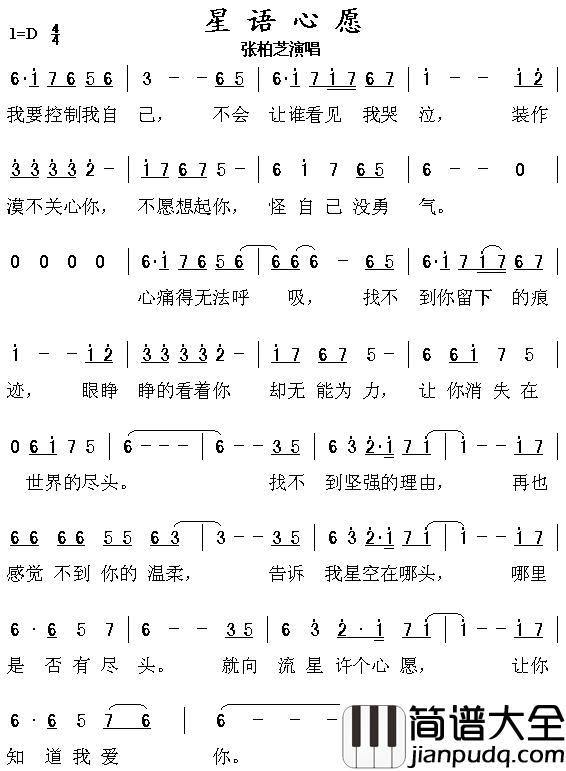 星语心愿
1=D 4/4
张柏芝演唱
6·i 7 6 5 6 | 3 - - 6 5 | 6·i 7 i 7 6 7 | i - - i 2
我要控制我自 己， 不会 让谁看见 我哭 泣， 装作
3 3 3 3 2 - | i 7 6 7 5 - | 6 i 7 5 | 6 - - 0
漠不关心你， 不愿想起你， 怪 自 己 没勇 气。
0 0 0 0 | 6·i 7 6 5 6 | 6 6 6 - 6 5 | 6·i 7 i 7 6 7
心痛得无法呼 吸， 找不 到你留下 的痕
i - - i 2 | 3 3 3 3 3 2 | i 7 6 7 5 | 6 6 i 7 5
迹， 眼睁 睁的看着你 却无 能为 力， 让 你消 失 在
0 6 i 7 5 | 6 - - - | 6 - - 3 5 | 6 3 2·i 7 i | i - - i 7
世界的尽头。 找不 到坚强的理由， 再也
6 6 6 6 5 5 6 3 | 3 - - 3 5 | 6 3 2·i 7 i | i - - i 7
感觉 不到 你的 温柔， 告诉 我星空在哪头， 哪里
6 · 6 5 7 | 6 - - 3 5 | 6 3 2 · i 7 i | i - - i 7
是 否 有 尽 头。 就向 流 星 许个心 愿， 让你
6 · 6 5 7 6 | 6 - -
知 道 我 爱 你。
简谱大全
jianpudq.com